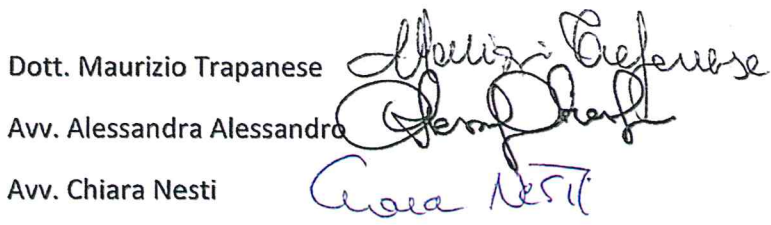 Dott. Maurizio Trapanese Maurizio Trapanese
Avv. Alessandra Alessandro
Avv. Chiara Nesti Chiara Nesti